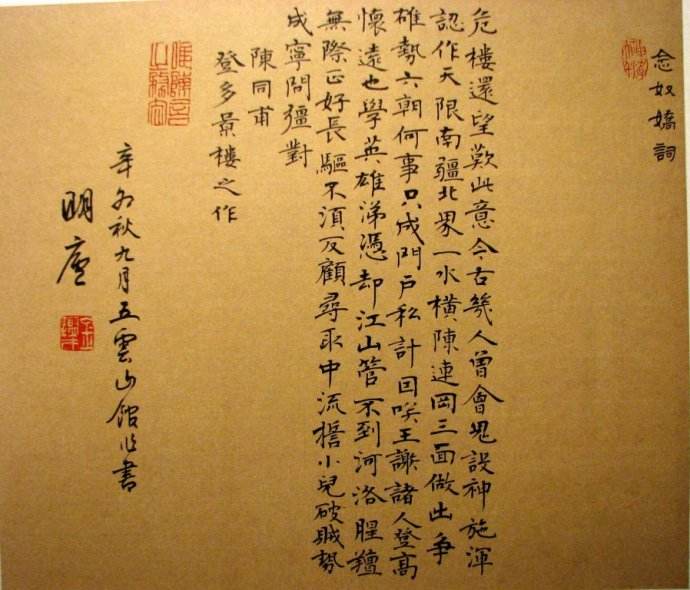 念奴嬌詞
危樓還望歎此意今古幾人曾會鬼設神施渾
認作天限南疆北界一水橫陳連岡三面做出爭
雄勢六朝何事只成門戶私計因咲王謝諸人登高
懷遠也學英雄涕憑却江山管不到河洛腥羶
無際正好長驅不須反顧尋取中流小兒破賊勢
成寧問彊對
陳同甫
登多景樓之作
辛卯秋九月五雲山館作書
明廬